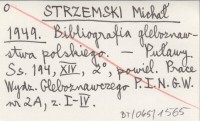 0
STRZEMSKI Michał
1949. Bibliografia gleboznaw-
stwa polskiego. — Puławy.
Ss. 194, XIV, 2°, powiel. Prace
Wydz. Gleboznawczego P.I.N.G.W.
nr 2A, z. I-IV.
BY/045/1565